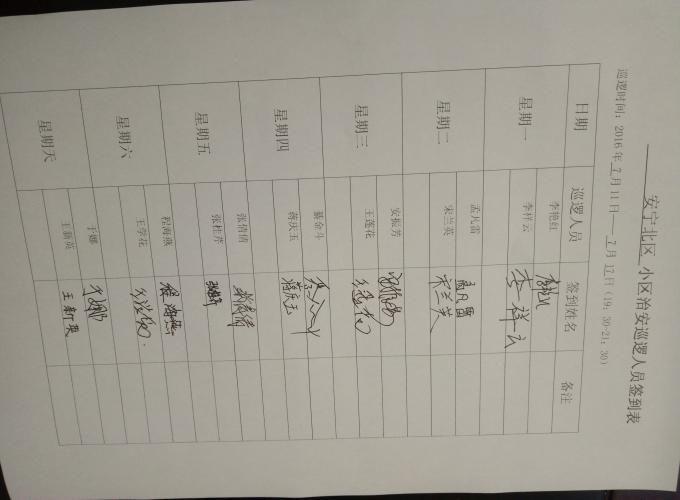 安宁北区 小区治安巡逻人员签到表
巡逻时间：2016年7月11日——7月17日（19：30-21：30）
日期 巡逻人员 签到姓名 备注
星期一 李艳红
李样云 李祥云
星期二 孟凡雷 孟凡雷
宋兰英 宋兰英
星期三 安振芳
王莲花
星期四 綦金斗
蒋庆玉 蒋庆玉
星期五 张倩倩 张倩倩
张桂芹
星期六 程海燕 程海燕
王学花
星期天 于娜 于娜
王新英 王新英